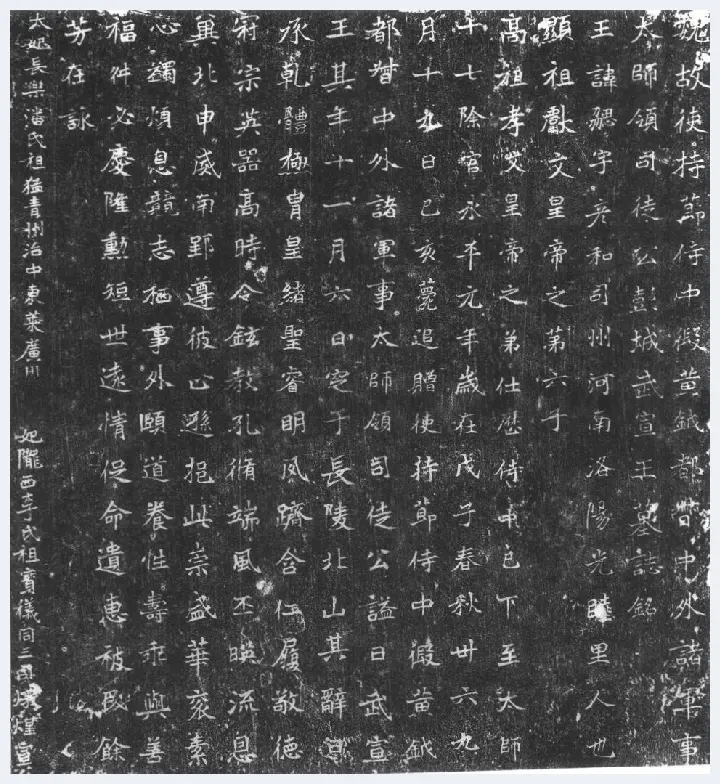 魏故使持節侍中假黄鉞都督中外諸軍事
太師領司徒公彭城武宣王墓誌銘
王諱勰字彦和司州河南洛陽光睦里人也
顯祖獻文皇帝之第六子
高祖孝文皇帝之弟仕歴侍中已下至太師
十七除官永平元年歳在戊子春秋卅六九
月十九日己亥薨追贈使持節侍中假黄鉞
都督中外諸軍事太師領司徒公謚曰武宣
王其年十一月六日窆于長陵北山其辭曰
承乾體極胄皇緒聖睿明夙躋含仁履敬德
冠宗英器高時令鉉教孔脩端風丕映流恩
冀北申威南郢遵彼止遜挹此崇盛華衮素
心蠲煩息競志栖事外頤道養性壽乖與善
福舛必慶隆勳短世遠情促命遺惠被民餘
芳在詠
太妃長樂潘氏祖猛青州治中東萊廣川 妃隴西李氏祖寶儀同三司燉煌宣